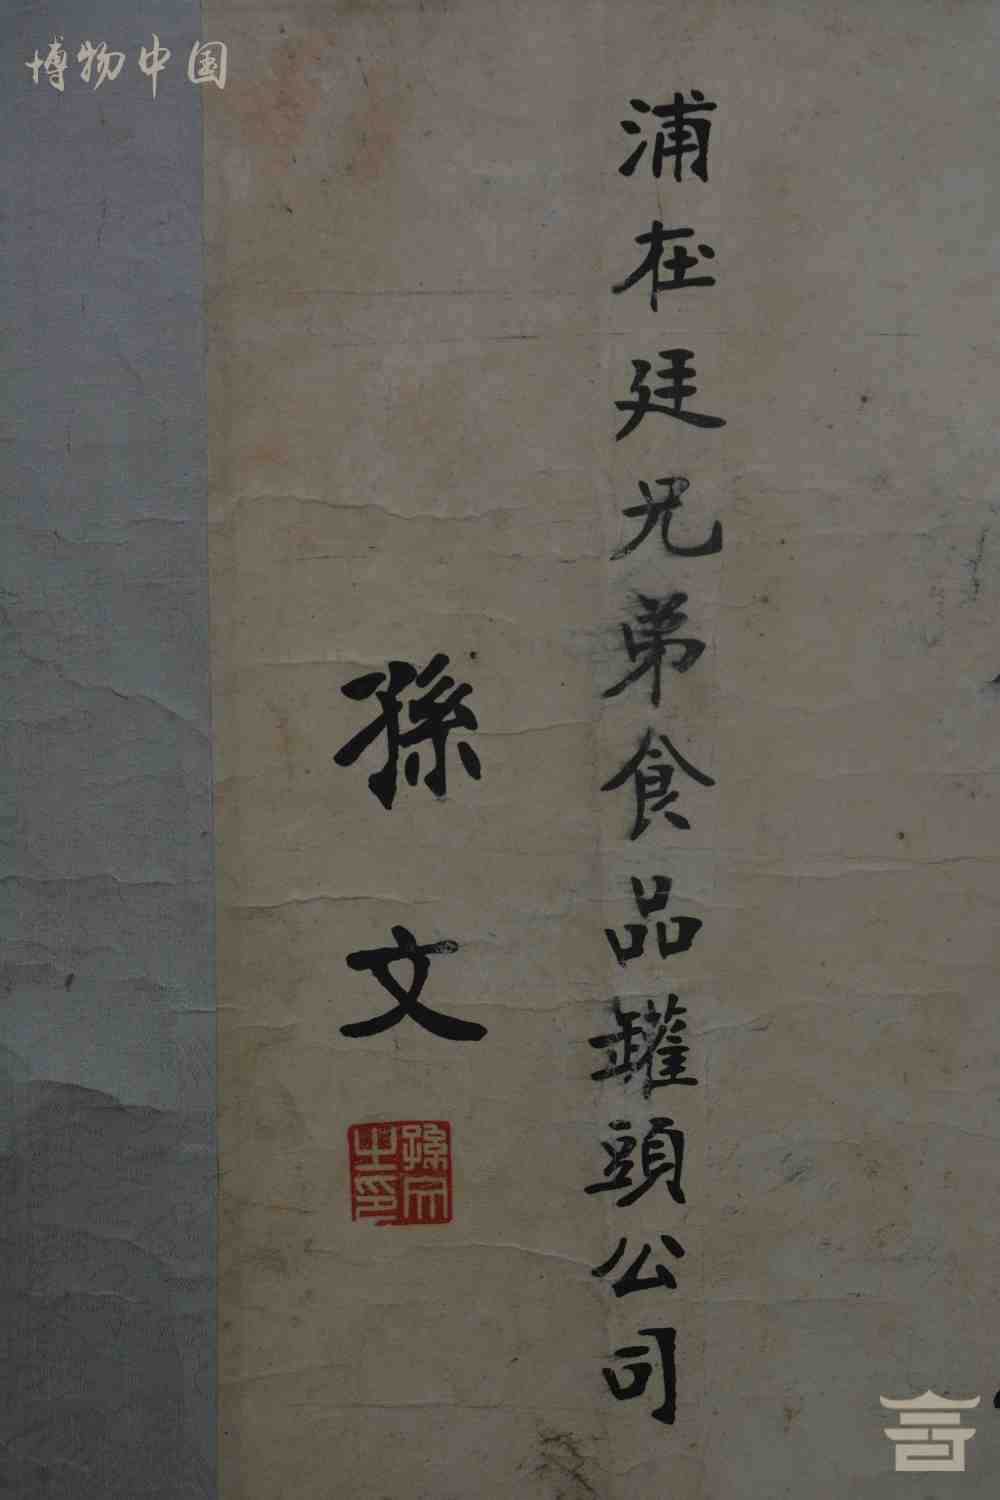 博物中国
浦在廷兄弟食品罐頭公司
孫文
孫文之印